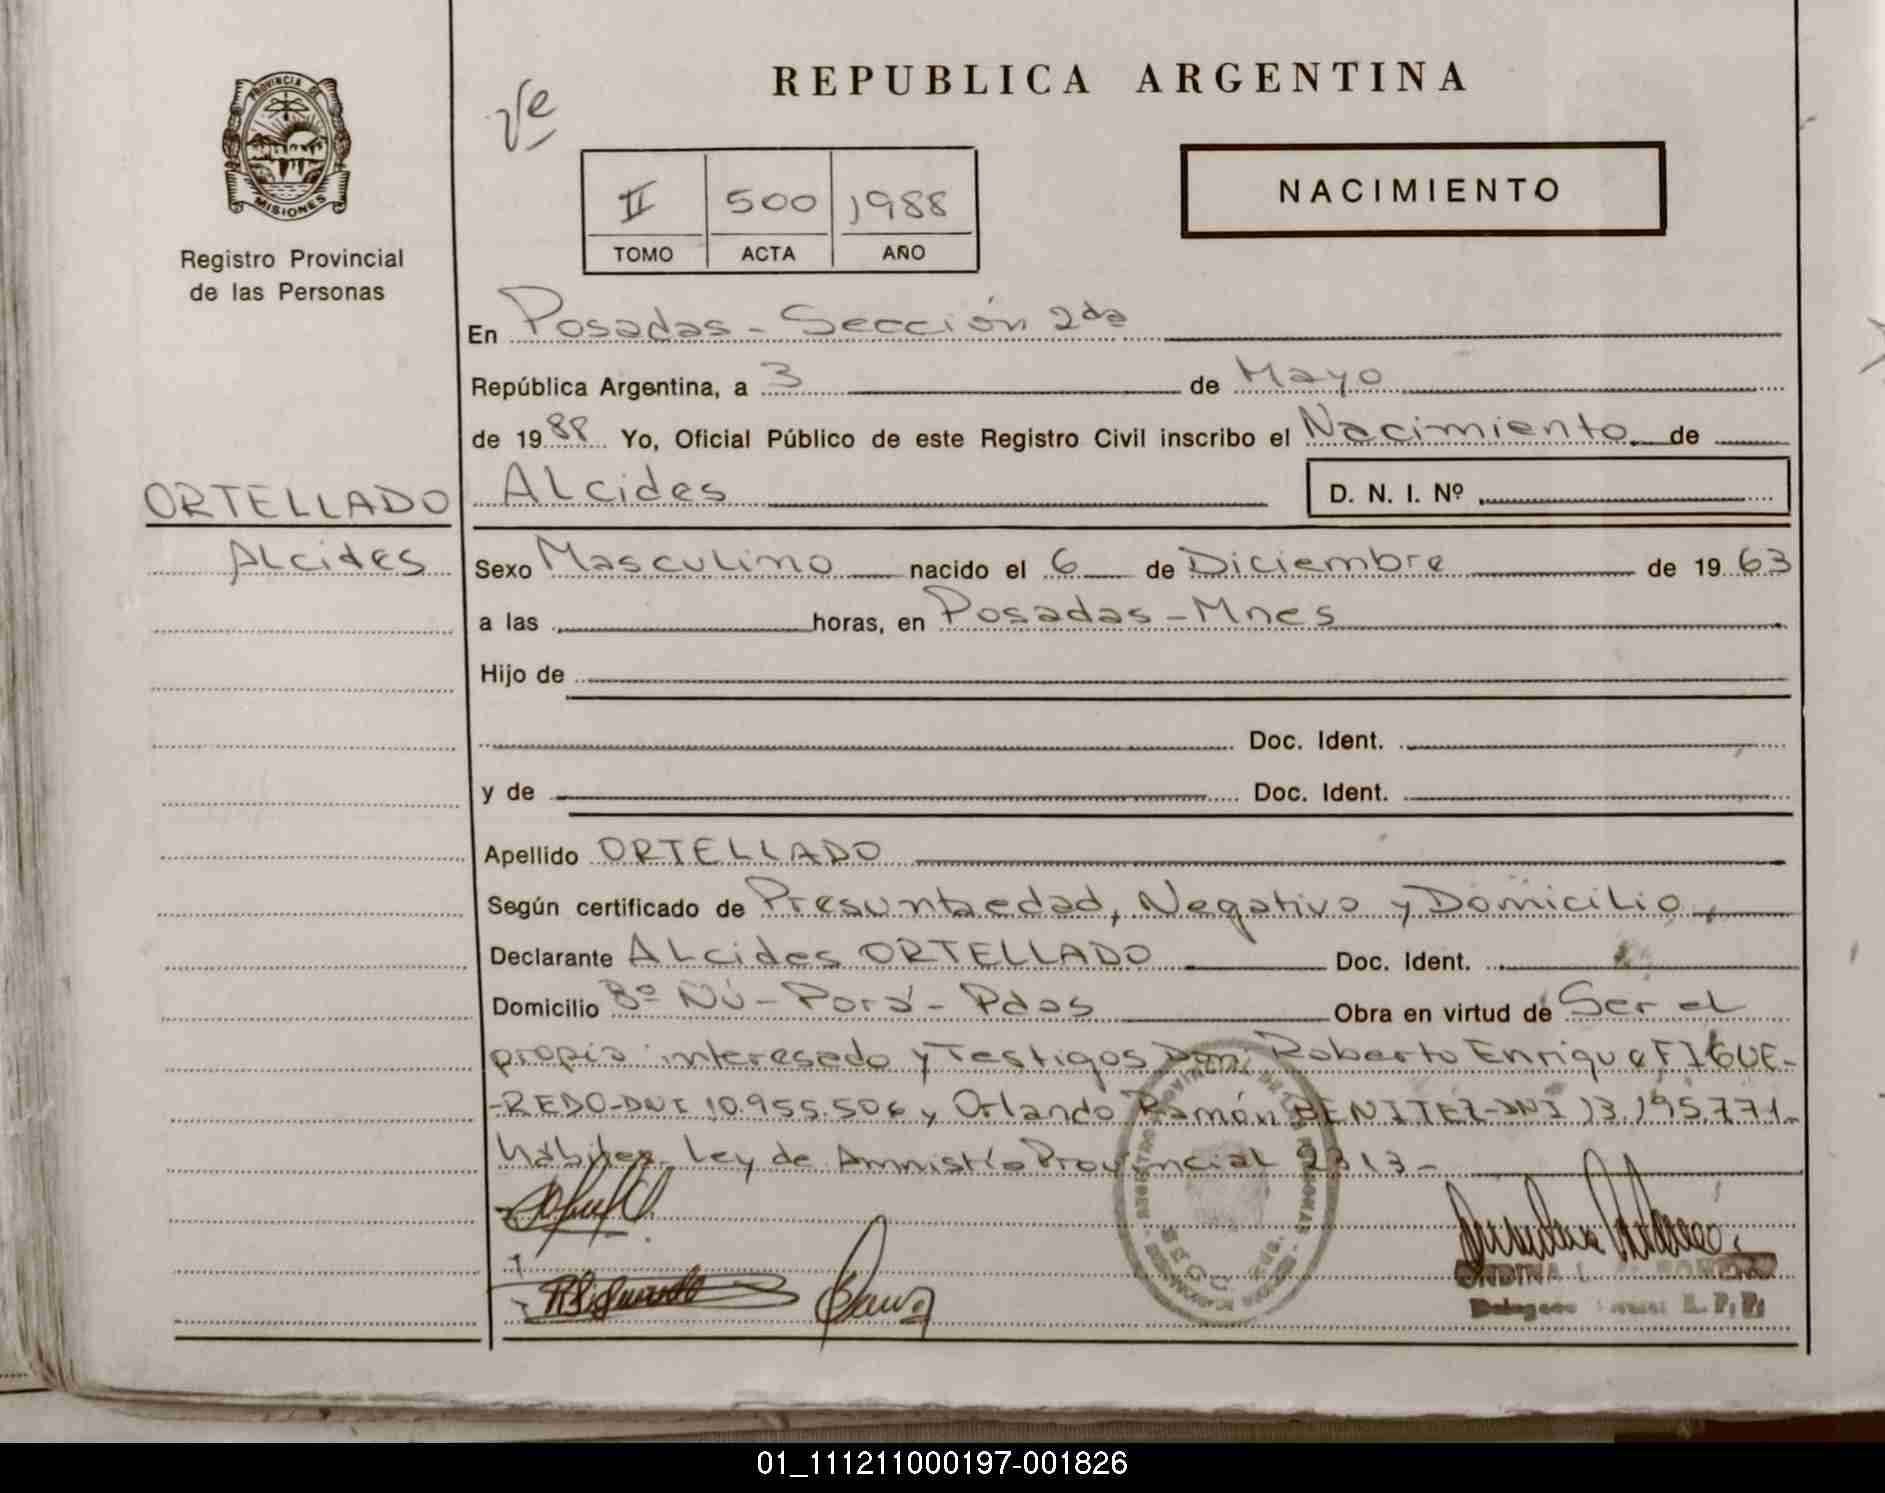 REPUBLICA ARGENTINA
PROVINCIA DE
MISIONES
Registro Provincial
de las Personas
Ve
II 500 1988
TOMO ACTA AÑO
NACIMIENTO
En Posadas - Sección 2da
República Argentina, a 3 de Mayo
de 1988 Yo, Oficial Público de este Registro Civil inscribo el Nacimiento de
ORTELLADO
Alcides
Alcides D. N. I. Nº
Sexo Masculino nacido el 6 de Diciembre de 1963
a las horas, en Posadas - Mnes
Hijo de
Doc. Ident.
y de Doc. Ident.
Apellido ORTELLADO
Según certificado de Presunta edad, Negativo y Domicilio
Declarante Alcides ORTELLADO Doc. Ident.
Domicilio Bº Ñú - Porá - Pdas Obra en virtud de Ser el
propio interesado y Testigos Don: Roberto Enrique FIGUE-
-REDO-DNI 10.955.506 y Orlando Ramón BENITEZ-DNI 13.195.771-
hábiles- Ley de Amnistía Provincial 2313-
ONDINA
Delegada R. P. P.
01_111211000197-001826